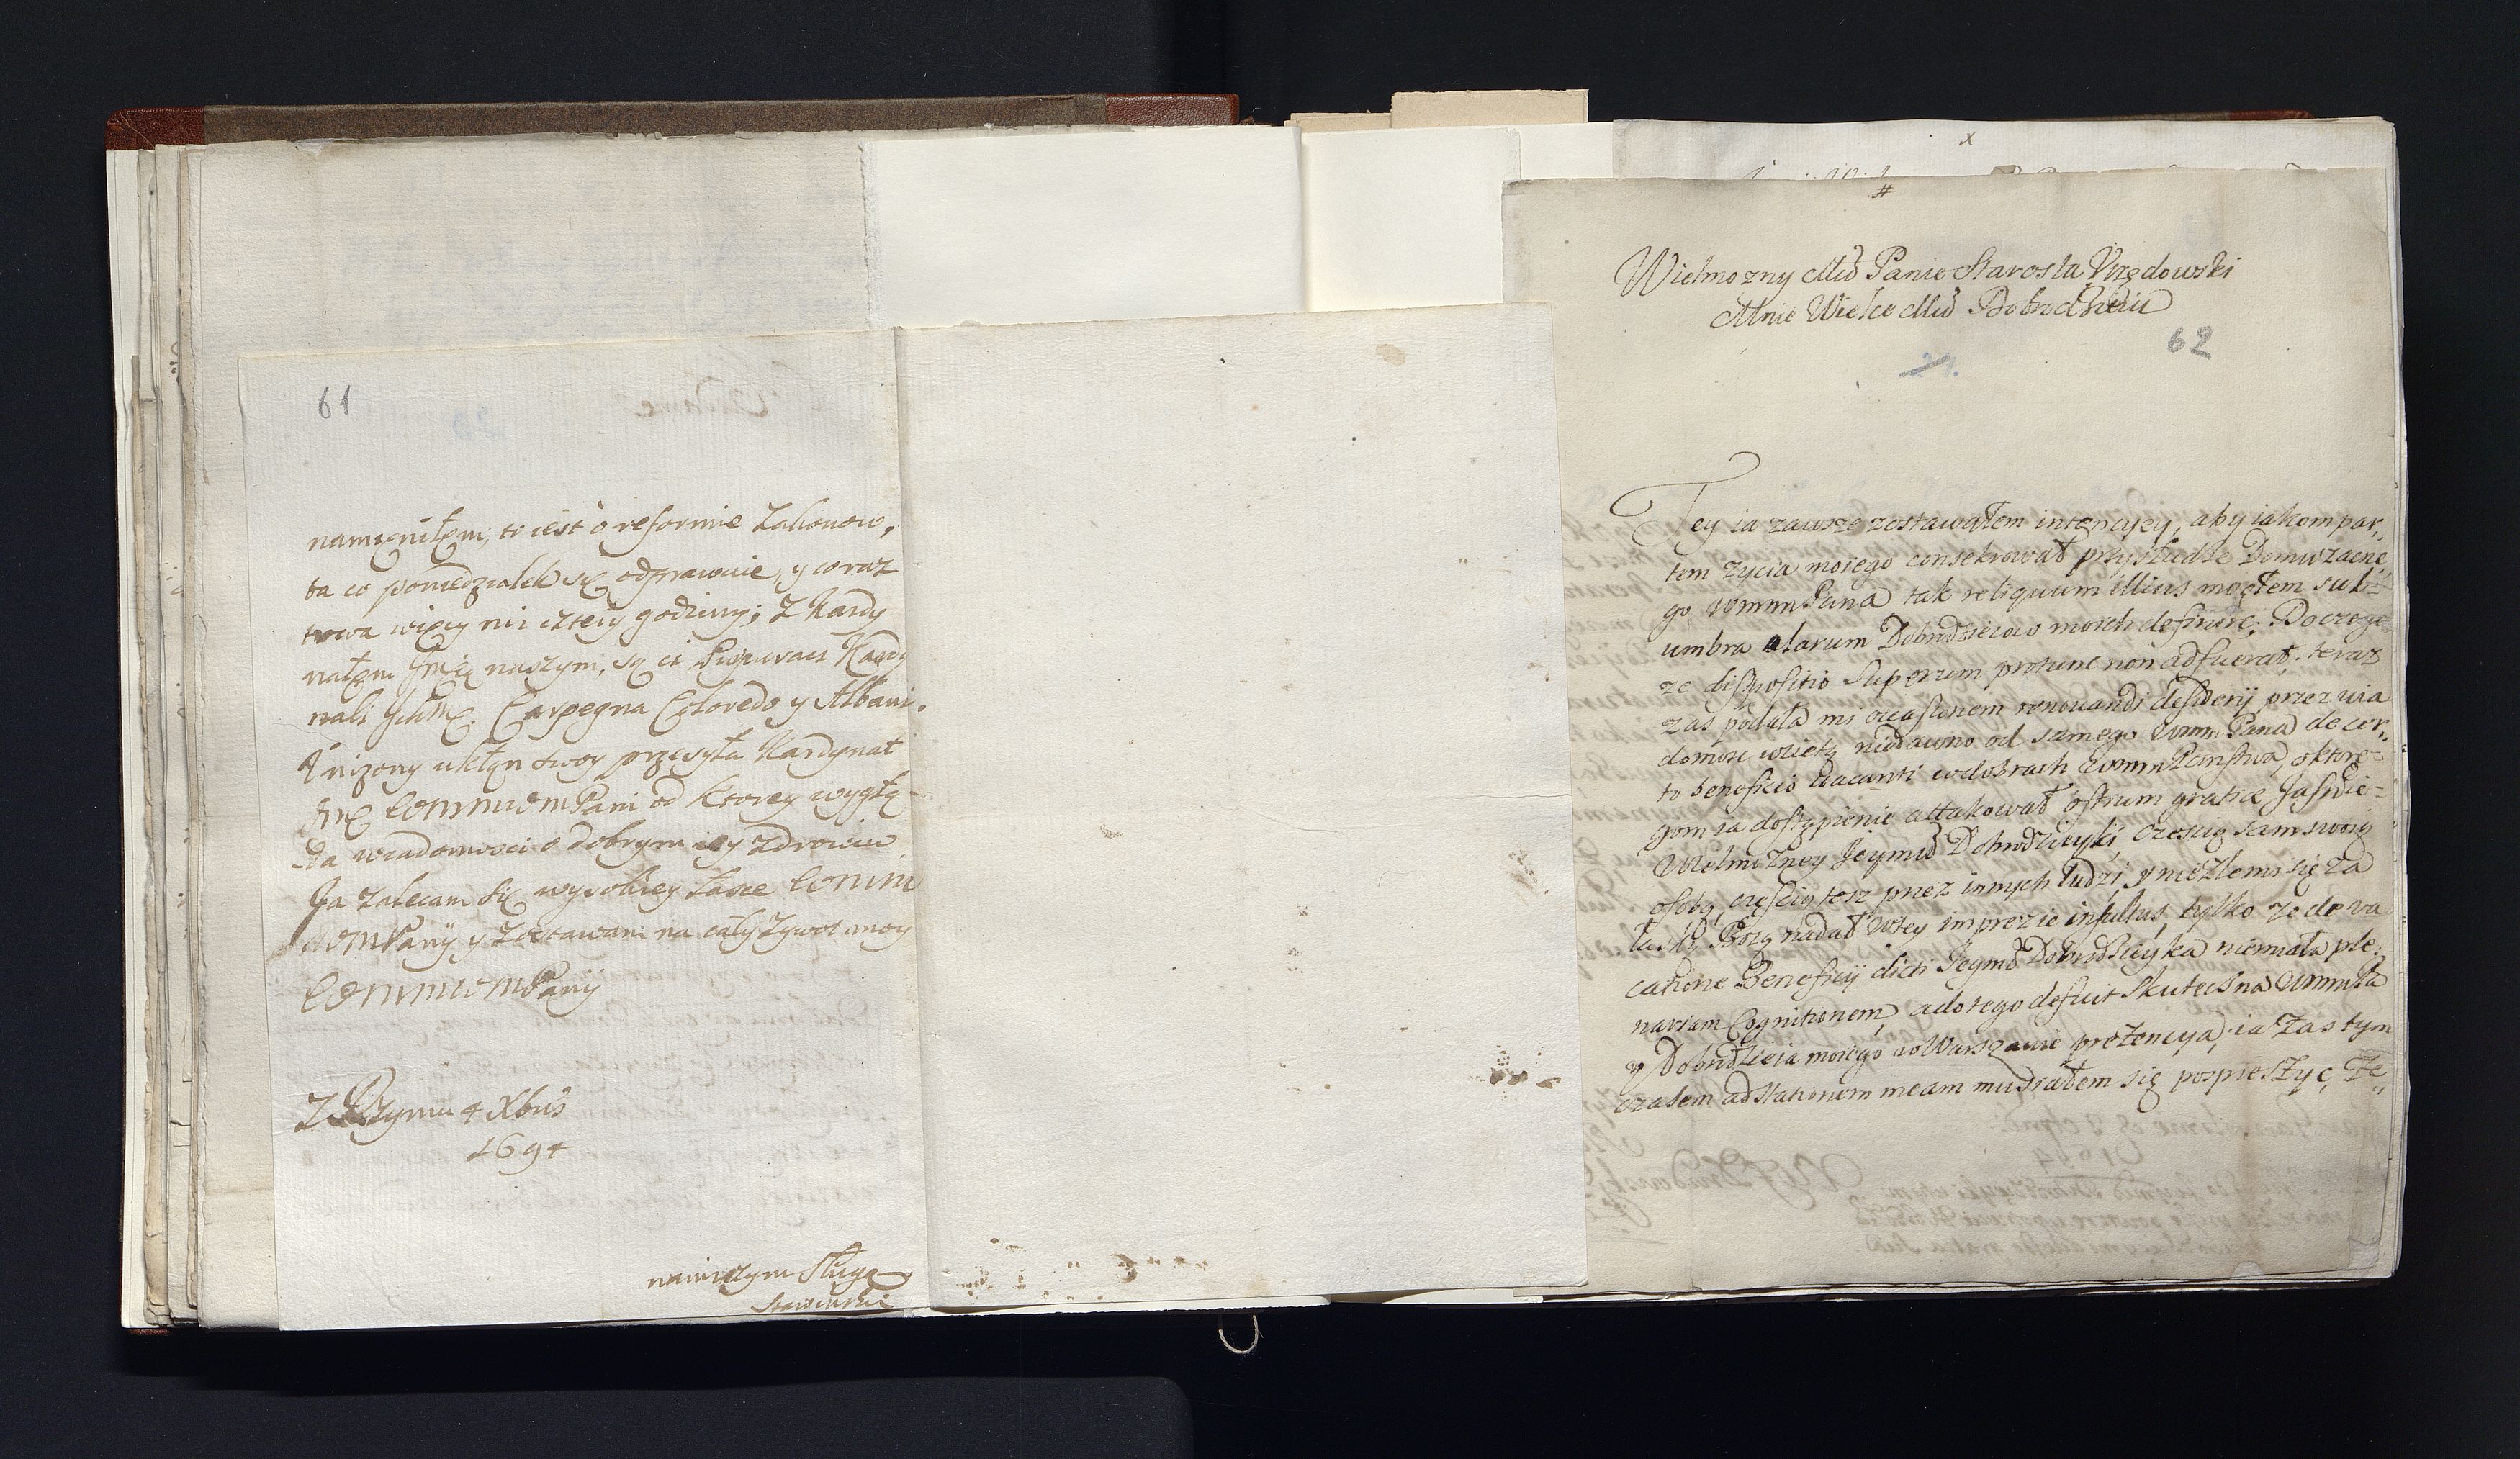 61
namieniłem, to iest o reformie Zakonow,
ta co poniedziałek się odprawuie, y coraz
trwa więcy niż cztery godziny; Z Kardy
nałem Jmcią naszym, są ci Kardy
nali Ichmć. Carpegna Coloredo y Albani.
Uniżony ukłon swoy przesyła Kardynał
Jmć Pani od ktorey wyglą-
da wiadomosci o dobrym iey zdrowiu
Ja zalecam się wysokiey łasce
Panÿ y zostawam na cały zywot moy
Panÿ
Z Rzymu 4 Xbris
1694
naniższym Sługą
x
#
Wielmozny Mci Panie Starosta Vrzędowski
Mnie Wielce Mci Dobrodzieiu
62
Tey ia zawsze zostawałem intencyey, aby iakom par,,
tem zycia moiego consekrował przysłudze Domu zacne,,
go wmm Pana tak reliquum illius mogłem sub=
umbra alarum Dobrodzieiow moich definire; Do czego
ze dispositio Superum protunc non adfuerat. teraz
zas podała mi occasionem renouandi desiderij przez wia
domosc wziętą niedawno od samego wmm Pana de cer,,
to beneficio vacanti w dobrach wmm Panstwa, oktore=
gom ia dostąpienie attakował ostium gratiæ Jasnie=
Wielmozney Jeymci Dobrodzieyki, częscią sam swoią
osobą, częscią tesz przez innych ludzi, y niezlem się za
łaską Bozą nadał wtey imprezie insultus, tylko ze de va
catione Beneficij dicti Jegmć Dobrodzieyka niemiała ple,,
nariam Cognitionem, a do tego deficit skuteczna wmm Pa
y Dobrodzieia moiego do Warszawie pretencya, ia zas tym
czasem ad stationem meam musiałem się pospieszyc, Ze,,